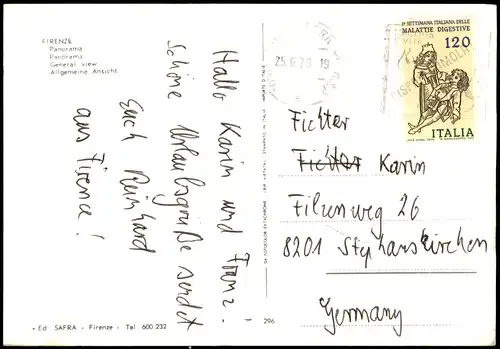 FIRENZE
Panorama
Panorama
General view
Allgemeine Ansicht
Hallo Karin und Franz!
Schöne Urlaubsgrüße sendet
Euch Reinhard
aus Firence!
Ed. SAFRA - Firenze - Tel. 600.232
296
25.6.78 19
Iª SETTIMANA ITALIANA DELLE
MALATTIE DIGESTIVE
120
ITALIA
Fichter
Fichter Karin
Filzenweg 26
8201 Stephanskirchen
Germany